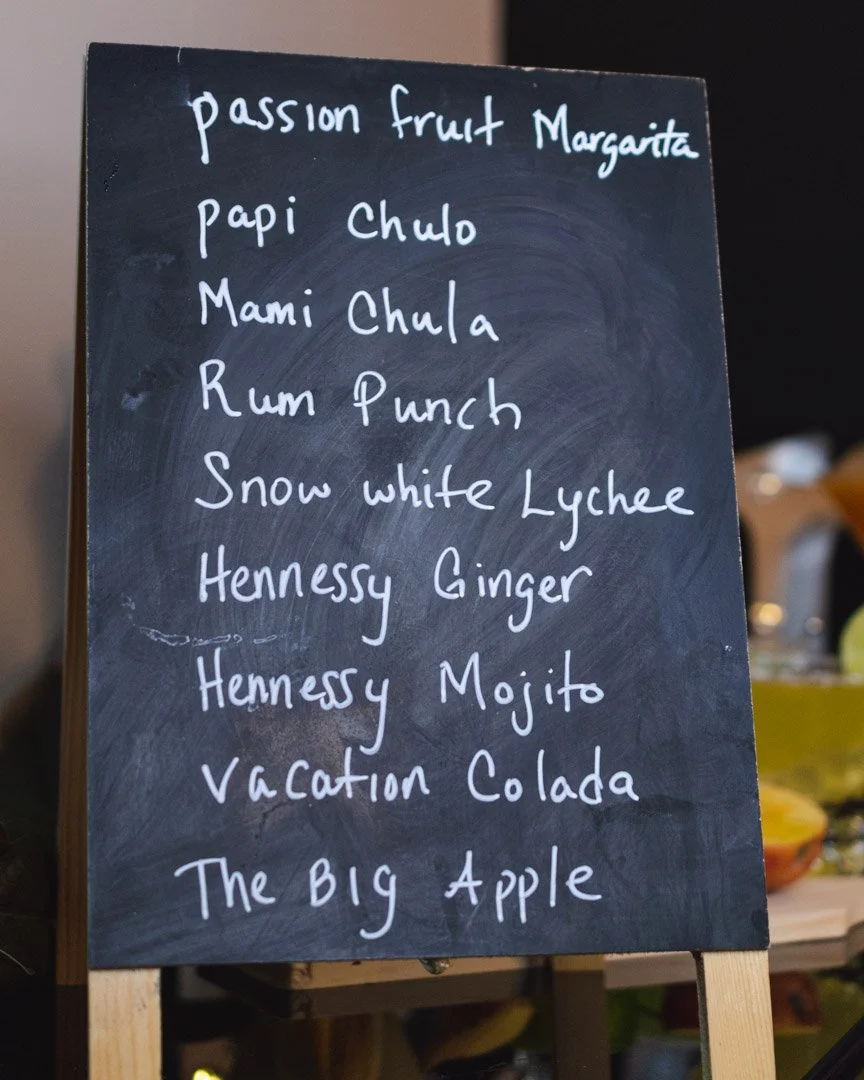 passion fruit Margarita
papi Chulo
Mami Chula
Rum Punch
Snow white Lychee
Hennessy Ginger
Hennessy Mojito
vacation Colada
The Big Apple